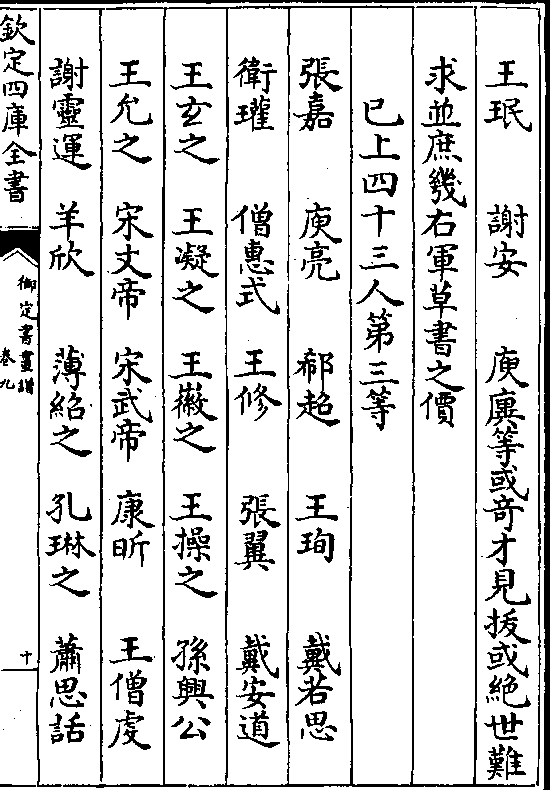 王珉　謝安　庾廙等或竒才見拔或絶世難
求並庶幾右軍草書之價
已上四十三人第三等
張嘉　庾亮　郗超　王珣　戴若思
衛瓘　僧惠式　王修　張翼　戴安道
王玄之　王凝之　王徽之　王操之　孫興公
王允之　宋文帝　宋武帝　康昕　王僧虔
謝靈運　羊欣　薄紹之　孔琳之　蕭思話
欽定四庫全書
御定書畫譜
卷九
十